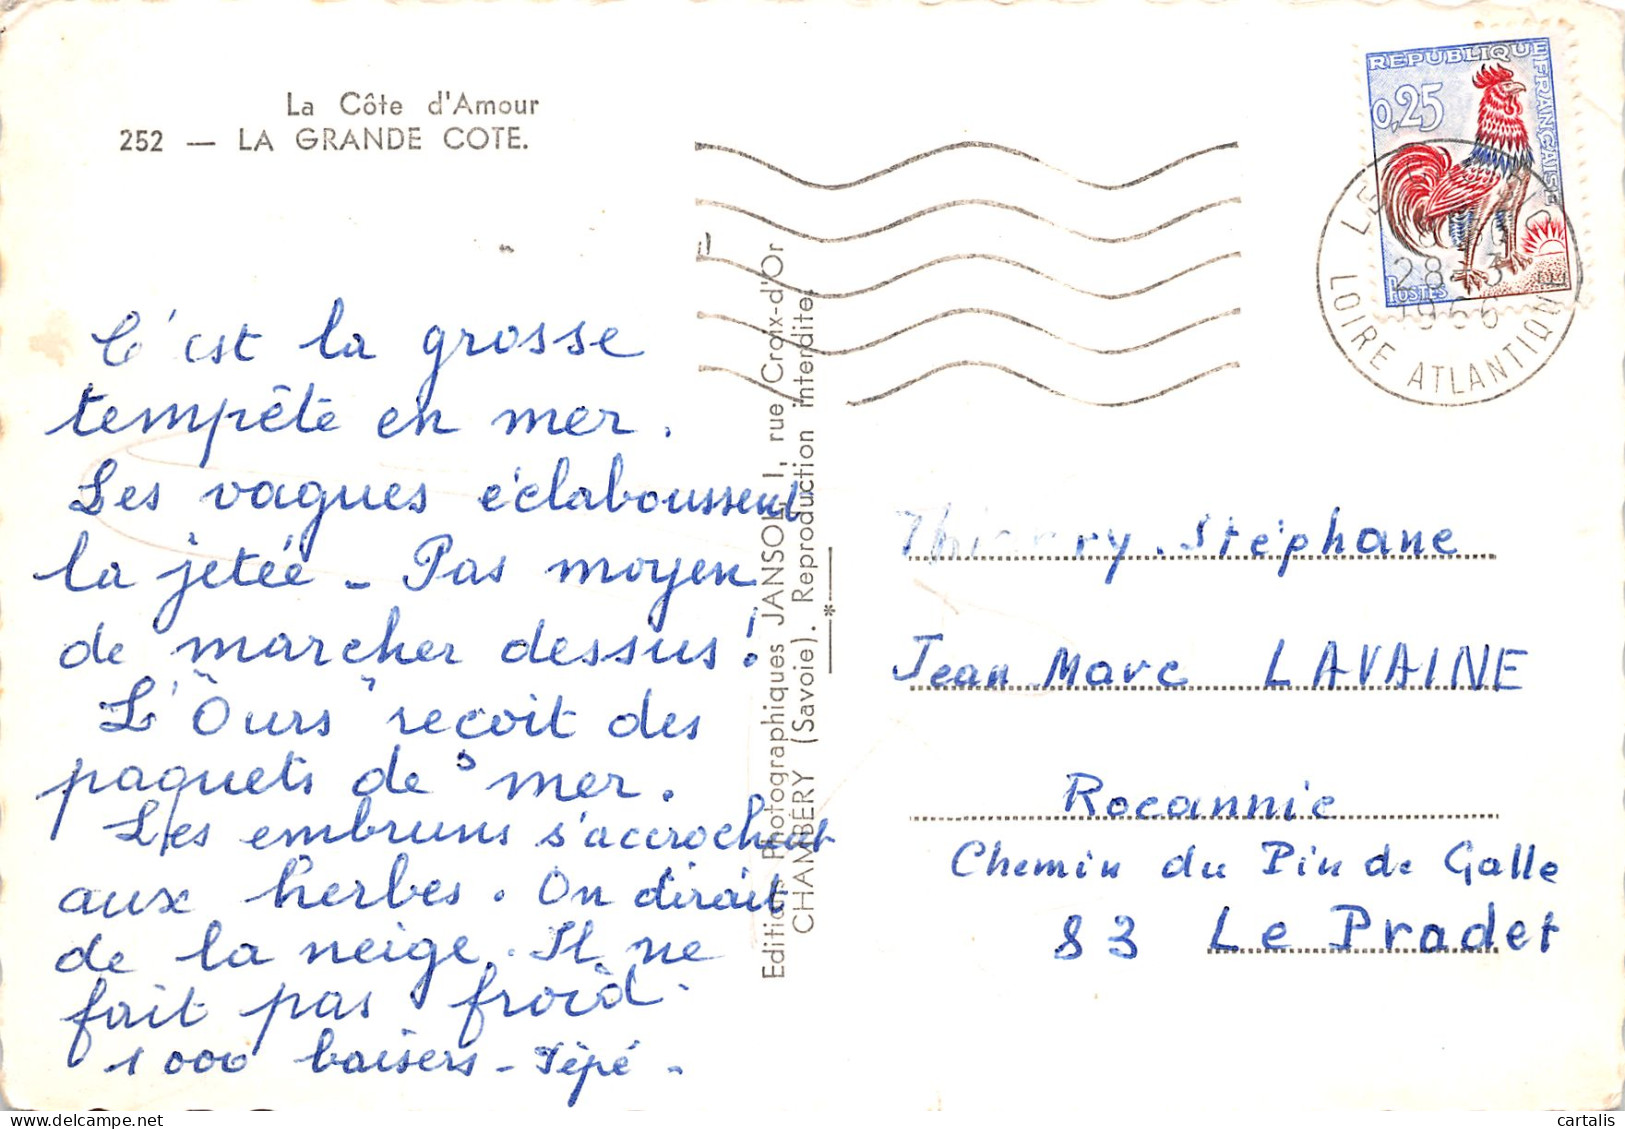 La Côte d'Amour
252 — LA GRANDE COTE.
REPUBLIQUE FRANÇAISE
0,25
POSTES
28-3
1966
LOIRE ATLANTIQUE
C'est la grosse
tempête en mer.
Les vagues éclaboussent
la jetée - Pas moyen
de marcher dessus !
L'"Ours" reçoit des
paquets de mer.
Les embruns s'accrochent
aux herbes. On dirait
de la neige. Il ne
fait pas froid.
1000 baisers - Pépé -
Editions Photographiques JANSOL, 1, rue Croix-d'Or
CHAMBÉRY (Savoie). Reproduction interdite.
Thierry. Stéphane
Jean Marc LAVAINE
Rocannie
Chemin du Pin de Galle
83 Le Pradet
cartalis